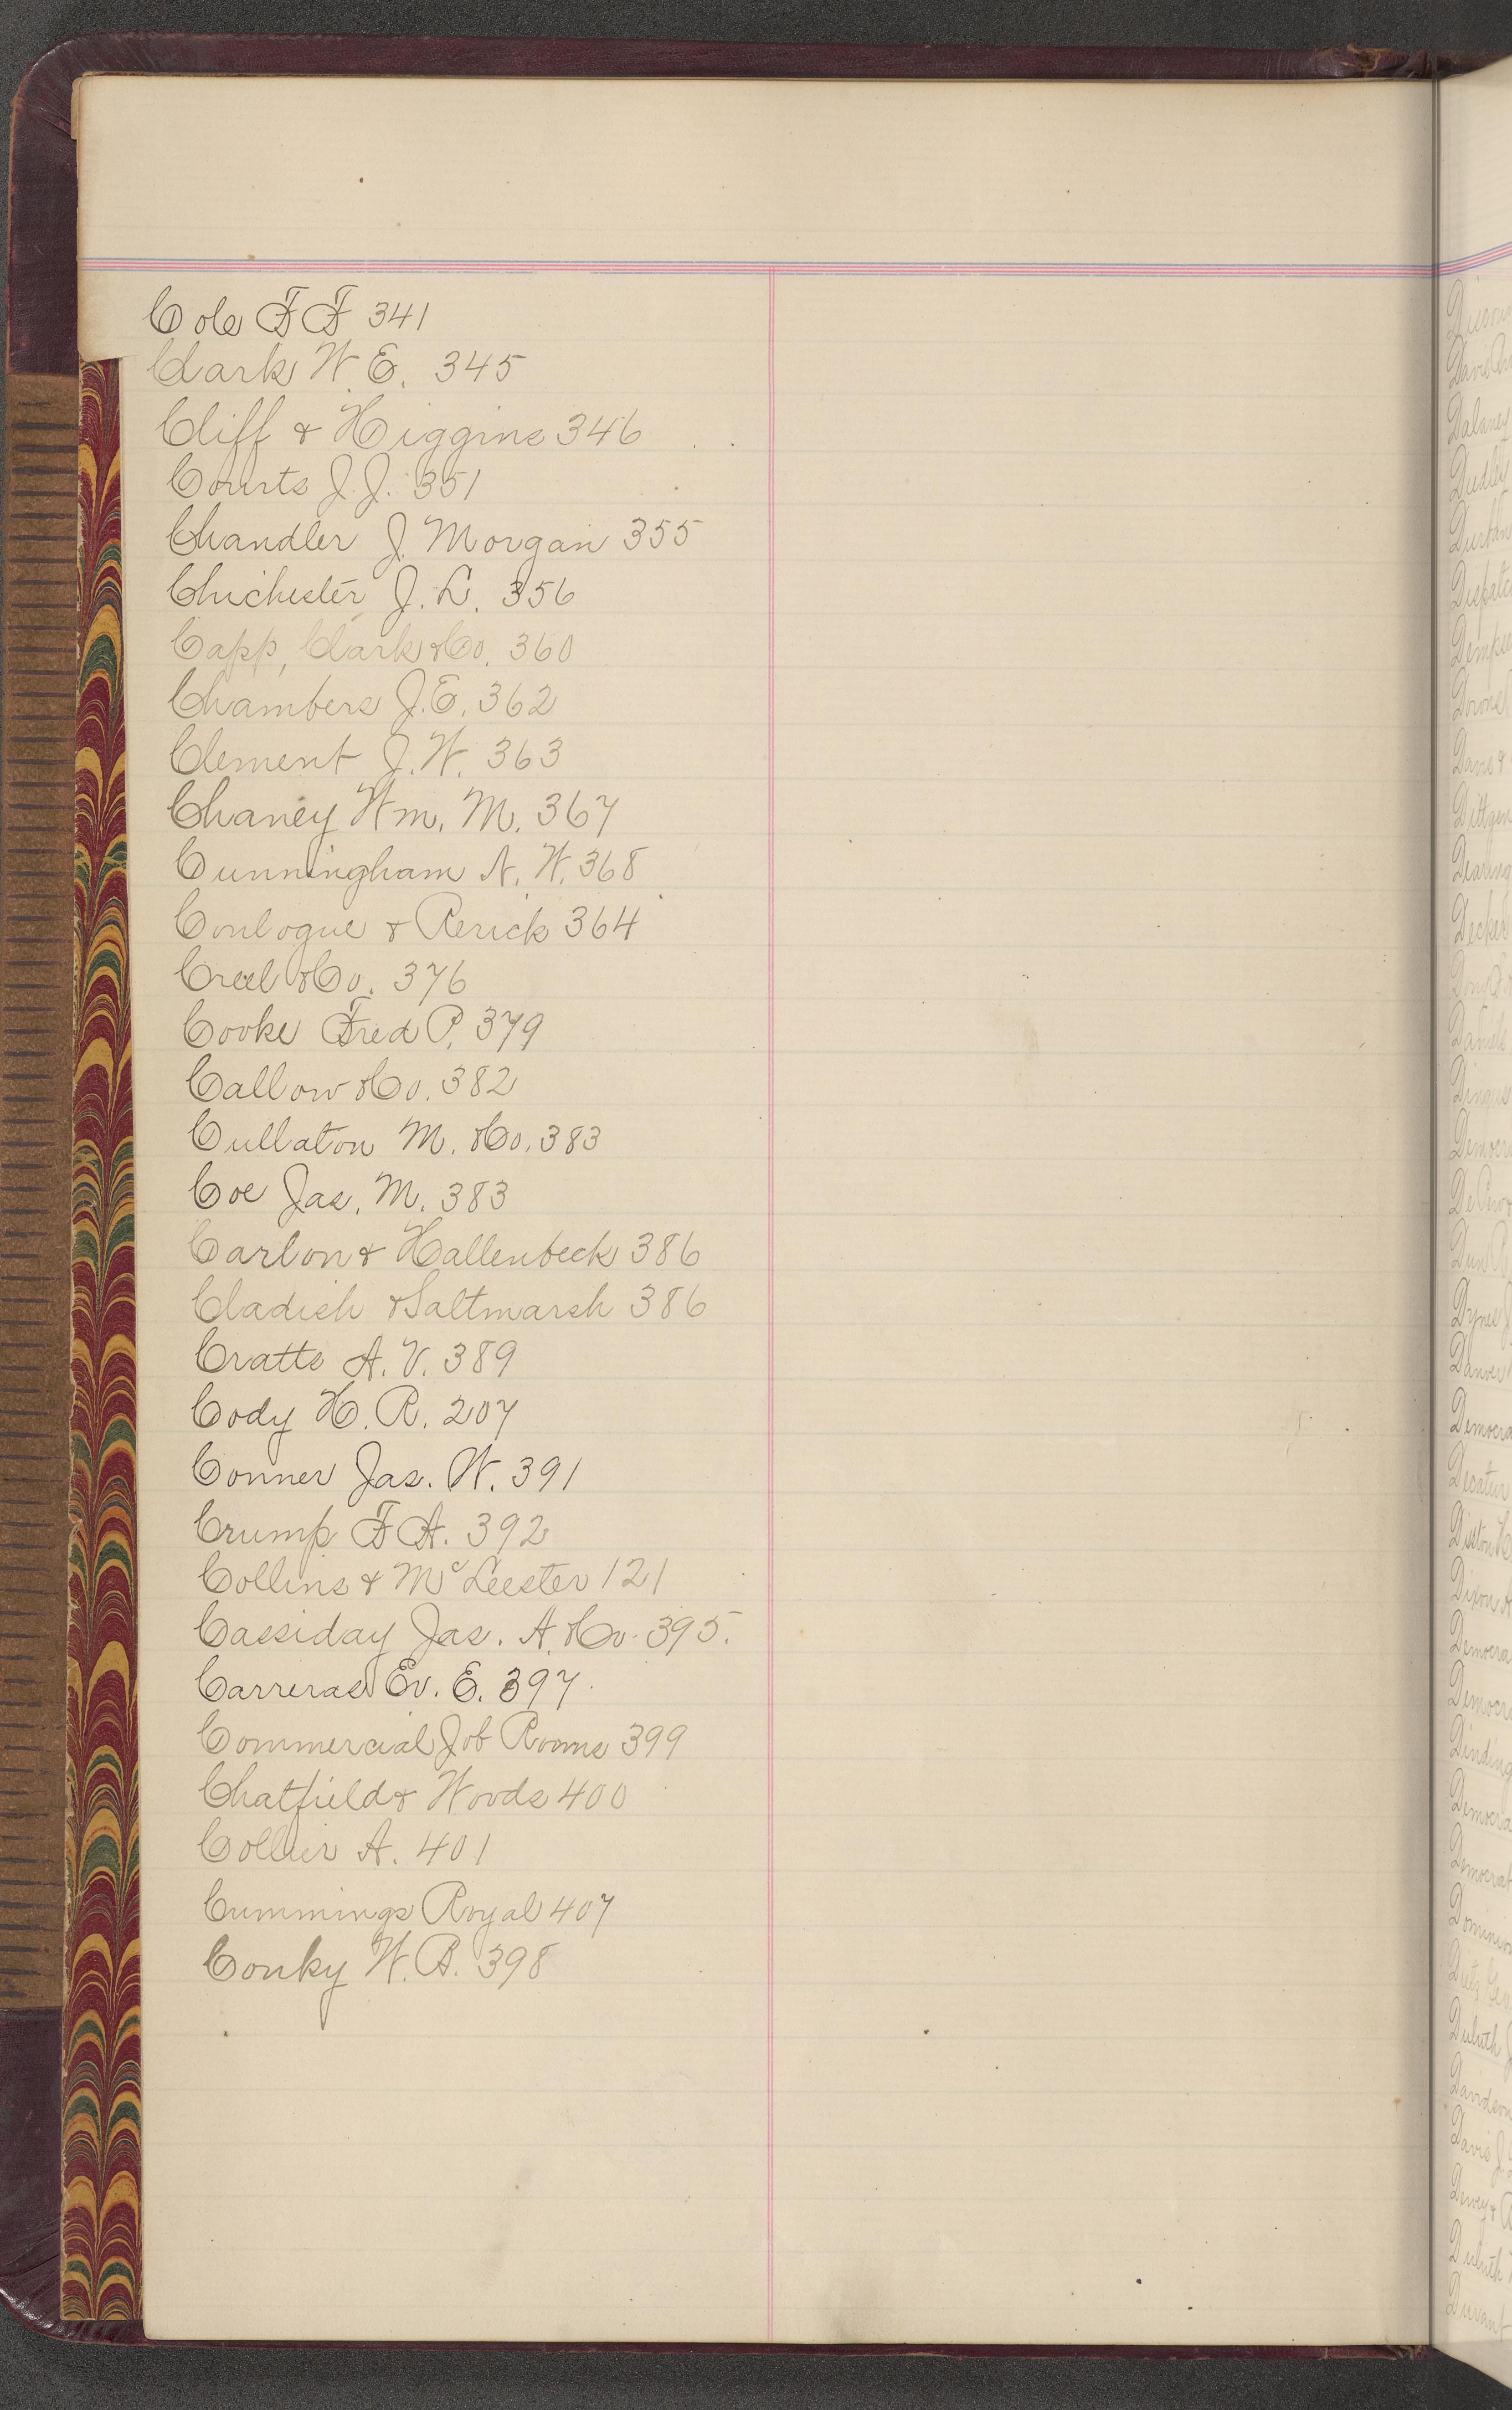 Cole F F 341
Clark W. E. 345
Cliff & Higgins 346
Courts J. J. 351
Chandler J. Morgan 355
Chichester J. L. 356
Capp, Clark & Co. 360
Chambers J. E. 362
Clement J. W. 363
Chaney Wm. M. 367
Cunningham N. W. 368
Conlogue & Rerick 364
Creel & Co. 376
Cooke Fred P. 379
Callow & Co. 382
Cullaton M. & Co. 383
Coe Jas. M. 383
Carlon & Hallenbeck 386
Cladish & Saltmarsh 386
Cratts A. V. 389
Cody H. R. 207
Conner Jas. W. 391
Crump F A. 392
Collins & McLeester 121
Cassiday Jas. A. & Co. 395.
Carreras Ev. E. 397.
Commercial Job Rooms 399
Chatfield & Woods 400
Collier A. 401
Cummings Royal 407
Conky W. B. 398